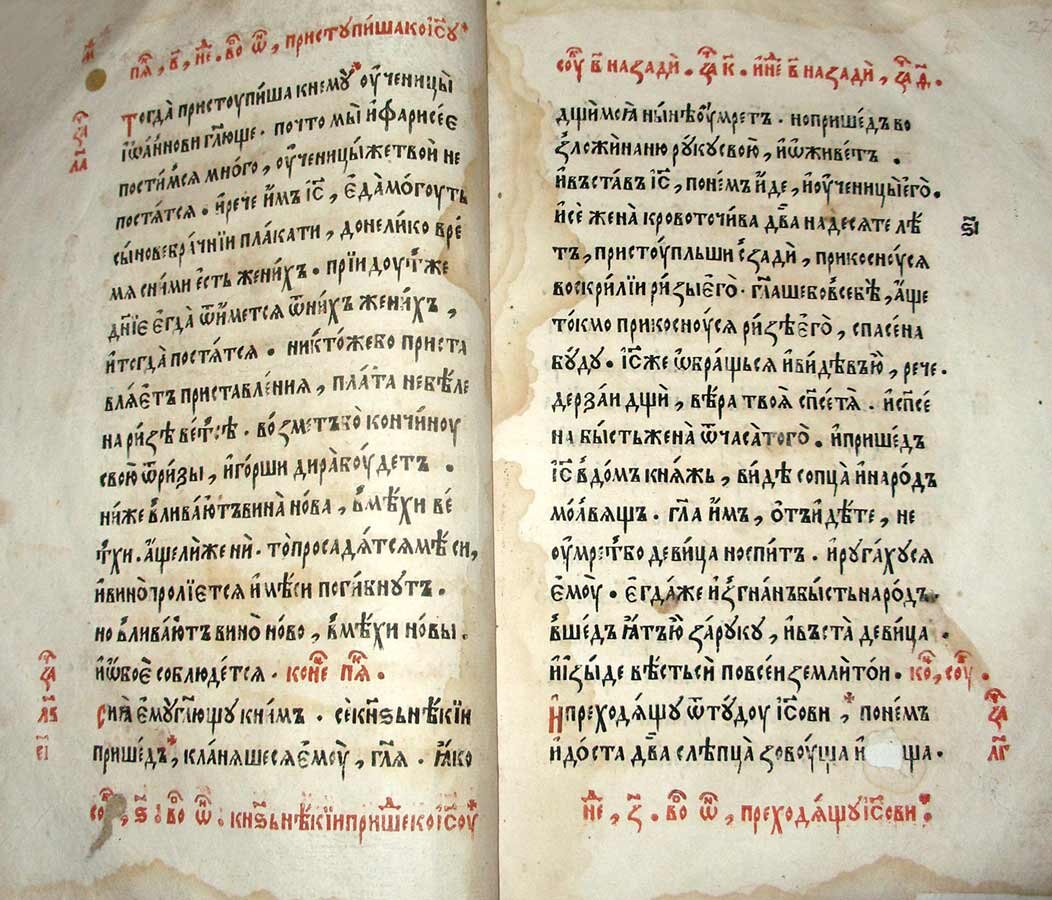 пꙗ҃, в҃, не҃. во ѿ, приступи́шакоі҃су
м҃
Тогда̀ пристоупи́ша кнему̀ оу҆ченицы̀
за҃
іѡа́ннови гл҃юще. почто мы̀ и҆фарисе́є
ла҃
постимсѧ мно́го, оу҆ченицыжетвоѝ не
постѧ́тсѧ. и҆рече и҆мъ і҃с, є҆да̀мо́гоуть
сы́новебра́чнїи плакати, донели́ко вре́
мѧ сни́ми є҆сть жени́хъ. прїи́доут же
дні҃є є҆гда̀ ѿи́метсѧ ѿни́хъ жени́хъ,
и҆тогда̀ постѧ́тсѧ. никто́жебо приста
влѧ́єтъ приставле́нїѧ, пла́та небѣ́ле
на ри́зѣ ве́тсѣ. во́зметъбо кончи́ноу
свою̀ ѿри́зы, и҆го́рши дира̀боу́детъ.
ни́же вливаютъвина̀ но́ва, вмѣ́хи ве́
тхи. а҆́щелиже нѝ. то̀просадѧ́тсѧмѣ́си,
и҆вино̀ пролїє́тсѧ и҆мѣ́си поги́бнутъ.
но влива́ютъ вино̀ но́во, вмѣ́хи но́вы.
и҆ѡбоє̀ соблюде́тсѧ. коне҃ пꙗ҃.
за҃
лв҃
Сиꙗ̀ є҆муглю҃щу кни́мъ. сѐкнѕ҃ьнѣ́кїи
еі҃
прише́дъ, кла́нѧшесѧє҆моу̀, гл҃ѧ. ꙗ҆́ко
соу҃, ѕ҃. во ѿ. кнѕ҃ьнѣ́кїипришекоі҃соу
соу҃ в҃ наза́дѝ. за҃ к҃. и҆не҃ в҃ наза́дѝ, за҃ д҃.
дщи́моꙗ̀ ны́нѣоу҆́мретъ. ноприше́дъ во
зложѝнаню̀ ру́кусвою̀, и҆ѡживе́тъ.
и҆въста́въ і҃с, поне́мъ и҆́де, и҆оу҆ченицы̀є҆го̀.
и҆сѐ жена̀ кровоточи́ва два̀ надесѧте лѣ́
ѕі҃
тъ, пристоу́пльши сзадѝ, прикосноусѧ
воскри́лїи ри́зыє҆го̀. гл҃ашебовсебѣ̀, а҆́ще
то́кмо прикосноусѧ ри́зѣє҆го̀, спасе́на
бу́ду. і҃сже ѡбра́щьсѧ и҆ви́дѣвъю̀, рече.
дерза́и дщѝ, вѣ́ра твоѧ̀ сп҃сетѧ̀. и҆сп҃се
на бы́стьжена̀ ѿчаса̀того̀. и҆прише́дъ
і҃с вдо́мъ кнѧ́жь, ви́дѣ сопца̀ и҆наро́дъ
мо́лвѧщъ. гл҃а и҆́мъ, ѻ҆тъи҆дѣ́те, не
оу҆́мретбо девица носпи́тъ. и҆руга́хусѧ
є҆моу̀. є҆гда́же и҆згна́нъбы́стьнаро́дъ.
вше́дъ ꙗ҆тъю̀ за́руку, и҆въста̀ деви́ца.
и҆и҆зы́де вѣ́стьсѝ повсе́иземли́тои. ко҃, соу҃.
И҆преходѧ́щу ѿту́доу і҃сови, поне́мъ
за҃
лг҃
и҆до́ста два̀ слѣпца̀ зовоу́ща и҆ ща.
не҃, з҃. во ѿ, преходѧ́щуі҃сови.